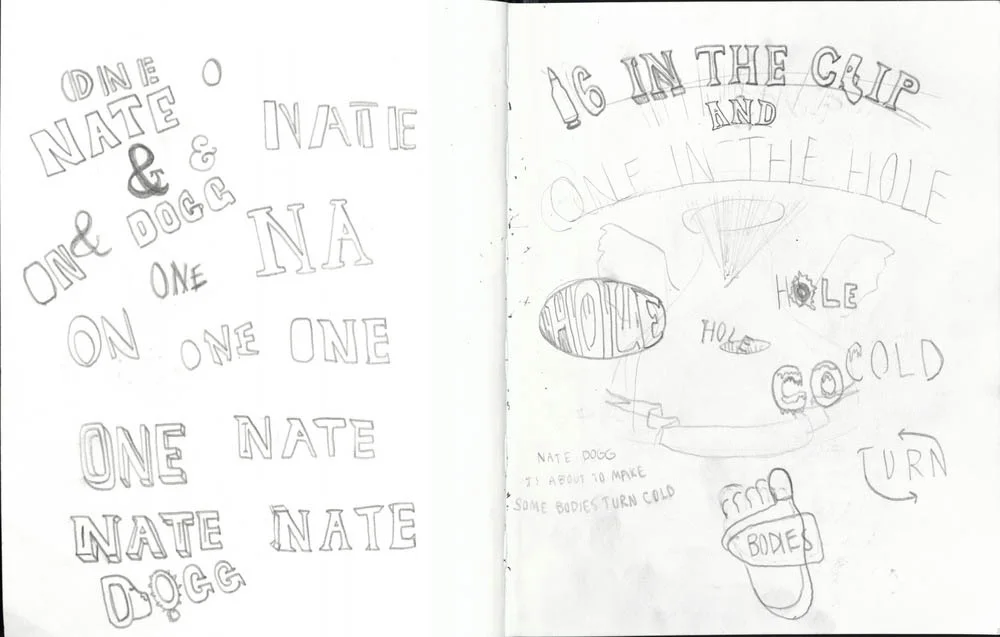 ONE
O
NATE
NATE
&
&
ON&
DOGG
ONE
NA
ON
ONE
ONE
ONE
NATE
NATE
NATE
DOGG
16 IN THE CLIP
AND
ONE IN THE HOLE
HOLE
HOLE
HOLE
CO
COLD
NATE DOGG
IS ABOUT TO MAKE
SOME BODIES TURN COLD
TURN
BODIES